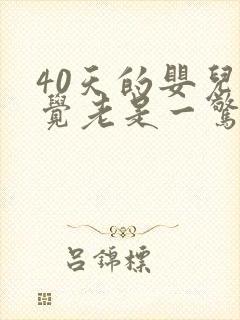 40天的嬰兒
覺老是一驚
吕錦標